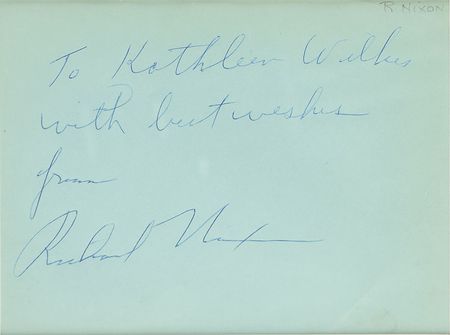 R. NIXON
To Kathleen Wilkes
with best wishes
from
Richard Nixon